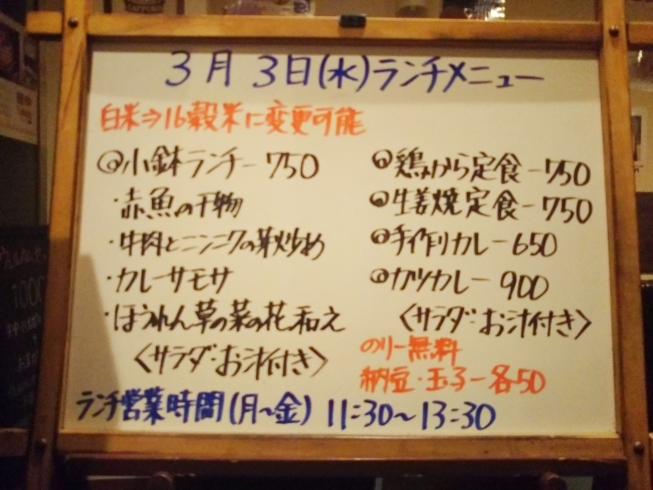 3月3日(水)ランチメニュー
白米⇒16穀米に変更可能
◎小鉢ランチー750
・赤魚の干物
・牛肉とニンニクの芽炒め
・カレーサモサ
・ほうれん草の菜の花和え
〈サラダ・お汁付き〉
◎鶏から定食ー750
◎生姜焼定食ー750
◎手作りカレー650
◎カツカレー900
〈サラダ・お汁付き〉
のりー無料
納豆・玉子ー各50
ランチ営業時間(月〜金) 11:30〜13:30
1000